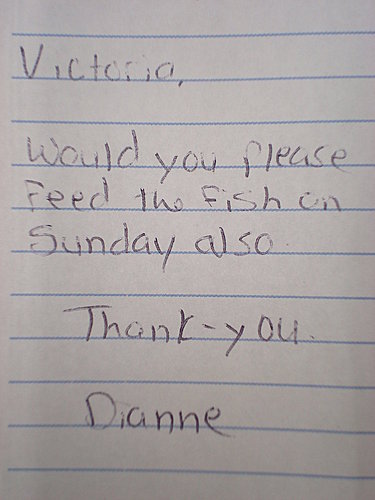 Victoria,
Would you please
Feed the Fish on
Sunday also.
Thank-you.
Dianne